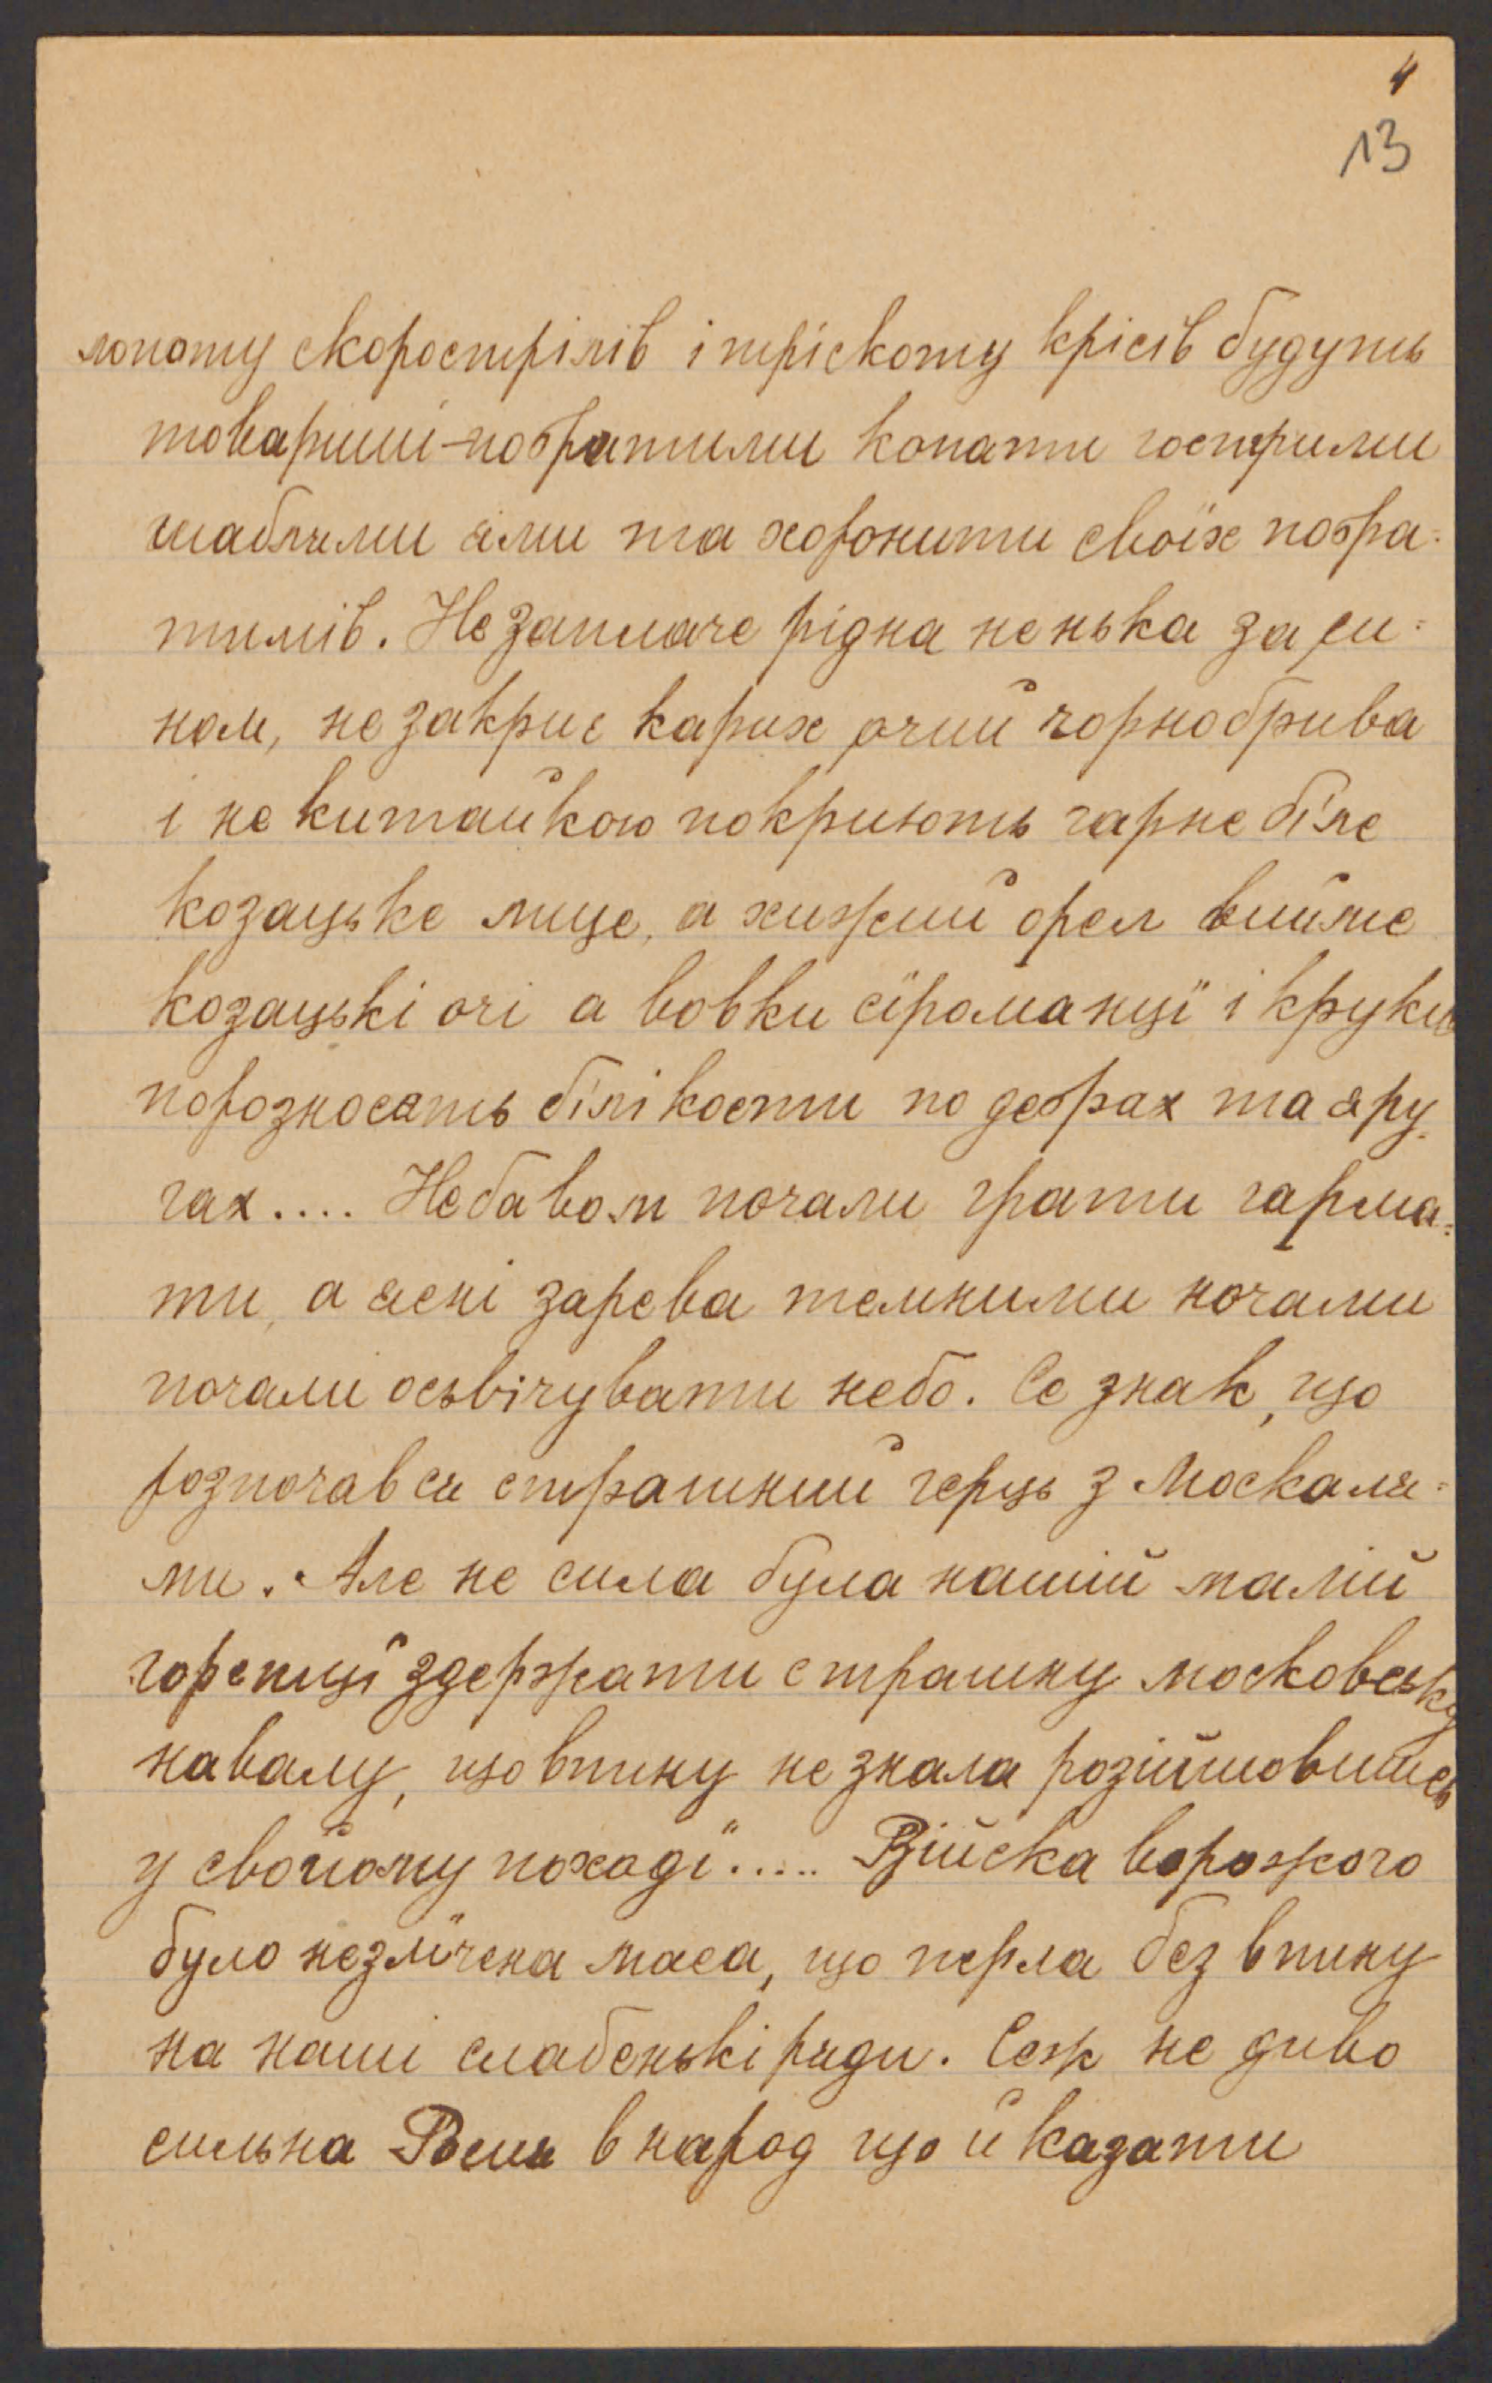 4
13
лопоту скорострілів і тріскоту крісів будуть
товариші-побратими копати гострими
шаблями ями та хоронити своїх побра-
тимів. Не заплаче рідна ненька за си-
ном, не закриє карих очий чорнобрива
і не китайкою покриють гарне біле
козацьке лице, а хижий орел вийме
козацькі очі а вовки сїроманцї і круки
порозносять білі кости по дебрах та яру-
гах.... Небавом почали грати гарма-
ти, а ясні зарева темними ночами
почали осьвічувати небо. Се знак, що
розпочався страшний герць з Москаля-
ми. Але не сила була нашій малій
горстцї здержати страшну московську
навалу, що впину не знала розійшовшись
у свойому походї..... Війска ворожого
було незлїчена маса, що перла без впину
на наші слабенькі ряди. Сеж не диво
сильна Росия в народ що й казати